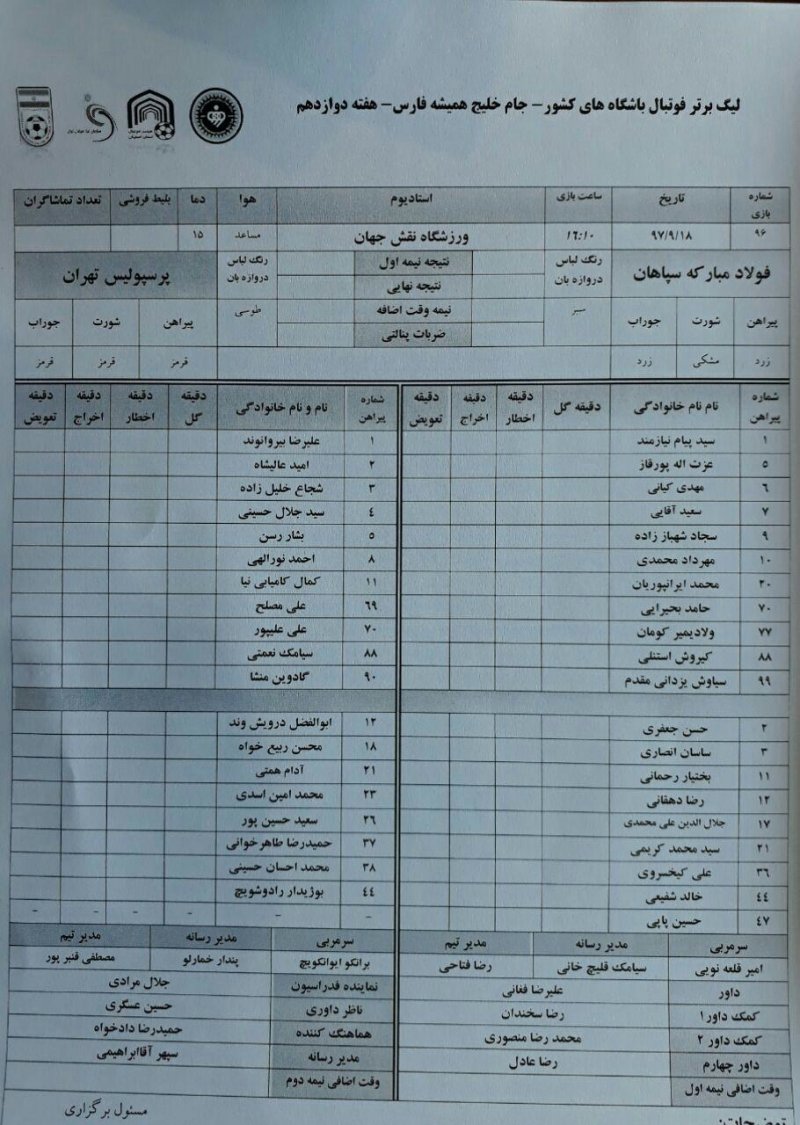 لیگ برتر فوتبال باشگاه های کشور- جام خلیج همیشه فارس- هفته دوازدهم
شماره بازی تاریخ ساعت بازی استادیوم هوا دما بلیط فروشی تعداد تماشاگران
۹۶ ۹۷/۹/۱۸ ۱۶:۱۰ ورزشگاه نقش جهان مساعد ۱۵
فولاد مبارکه سپاهان رنگ لباس دروازه بان نتیجه نیمه اول رنگ لباس دروازه بان پرسپولیس تهران
نتیجه نهایی
پیراهن شورت جوراب سبز نیمه وقت اضافه طوسی پیراهن شورت جوراب
ضربات پنالتی
زرد مشکی زرد قرمز قرمز قرمز
شماره پیراهن نام نام خانوادگی دقیقه گل دقیقه اخطار دقیقه اخراج دقیقه تعویض شماره پیراهن نام و نام خانوادگی دقیقه گل دقیقه اخطار دقیقه اخراج دقیقه تعویض
۱ سید پیام نیازمند ۱ علیرضا بیروانوند
۵ عزت اله پورقاز ۲ امید عالیشاه
۶ مهدی کیانی ۳ شجاع خلیل زاده
۷ سعید آقایی ۴ سید جلال حسینی
۹ سجاد شهباز زاده ۵ بشار رسن
۱۰ مهرداد محمدی ۸ احمد نورالهی
۲۰ محمد ایرانپوریان ۱۱ کمال کامیابی نیا
۷۰ حامد بحیرایی ۶۹ علی مصلح
۷۷ ولادیمیر کومان ۷۰ علی علیپور
۸۸ کیروش استنلی ۸۸ سیامک نعمتی
۹۹ سیاوش یزدانی مقدم ۹۰ گادوین منشا
۲ حسن جعفری ۱۲ ابوالفضل درویش وند
۳ ساسان انصاری ۱۸ محسن ربیع خواه
۱۱ بختیار رحمانی ۲۱ آدام همتی
۱۲ رضا دهقانی ۲۳ محمد امین اسدی
۱۷ جلال الدین علی محمدی ۲۶ سعید حسین پور
۲۱ سید محمد کریمی ۳۷ حمیدرضا طاهرخوانی
۳۶ علی کیخسروی ۳۸ محمد احسان حسینی
۴۴ خالد شفیعی ۴۴ بوژیدار رادوشویچ
۴۷ حسین پاپی - - - - - -
سرمربی مدیر رسانه مدیر تیم سرمربی مدیر رسانه مدیر تیم
امیر قلعه نویی سیامک قلیچ خانی رضا فتاحی برانکو ایوانکویچ پندار خمارلو مصطفی قنبر پور
داور علیرضا فغانی نماینده فدراسیون جلال مرادی
کمک داور۱ رضا سخندان ناظر داوری حسین عسگری
کمک داور ۲ محمد رضا منصوری هماهنگ کننده حمیدرضا دادخواه
داور چهارم رضا عادل مدیر رسانه سپهر آقاابراهیمی
وقت اضافی نیمه اول وقت اضافی نیمه دوم
مسئول برگزاری